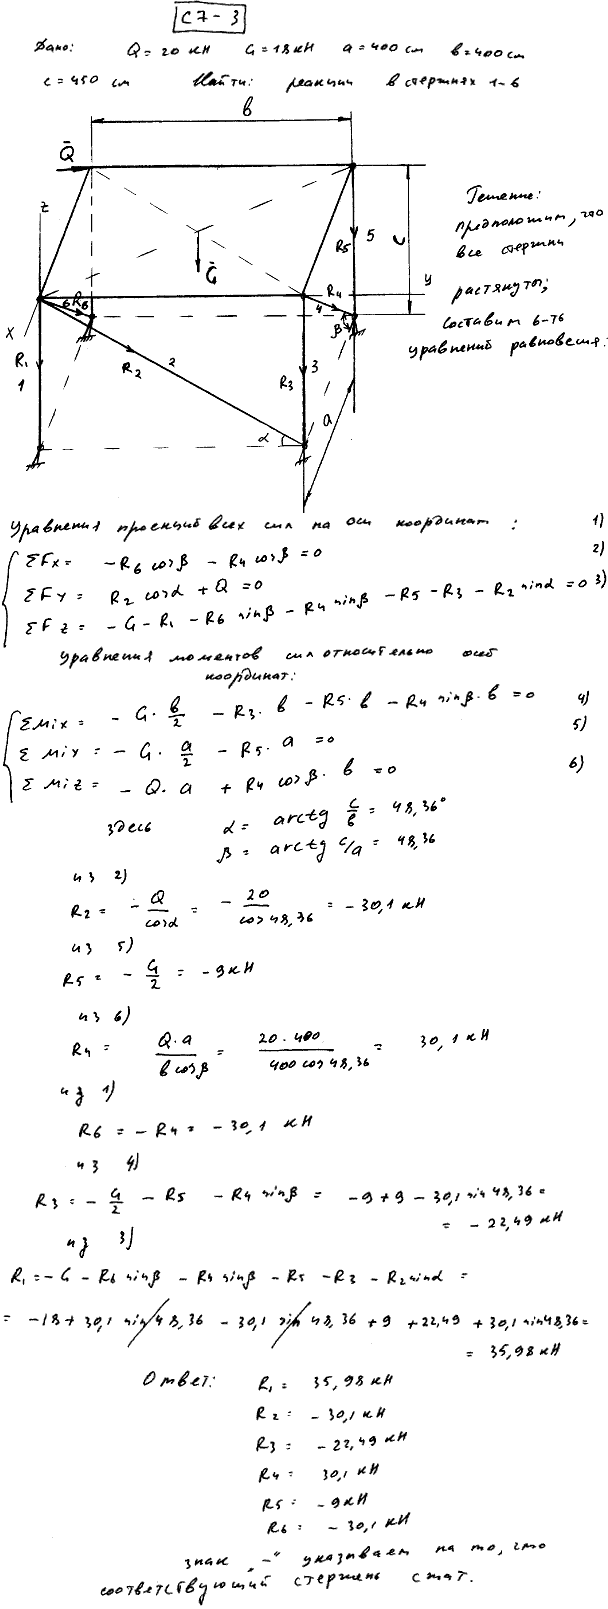 С7-3
Дано: Q=20 кН G=18кН a=400 см в=400см
с=450 см Найти: реакции в стержнях 1-6
в
Q̄
z
5
R5
c
Решение:
предположим, что
все стержни
растянуты;
составим 6-ть
уравнений равновесия:
Ḡ
6 R6
R4
4
y
x
β
R1
1
R2
2
R3
3
α
a
Уравнения проекций всех сил на оси координат:
ΣFx= -R6 cosβ - R4 cosβ=0 1)
ΣFy= R2 cosα + Q=0 2)
ΣFz= -G-R1-R6 sinβ-R4 sinβ-R5-R3-R2 sinα=0 3)
Уравнения моментов сил относительно осей
координат:
ΣMix= -G·в/2 -R3·в -R5·в -R4 sinβ·в=0 4)
ΣMiy= -G·a/2 -R5·a=0 5)
ΣMiz= -Q·a +R4 cosβ·в=0 6)
здесь α= arctg c/в= 48,36°
β= arctg c/a= 48,36
из 2)
R2= -Q/cosα= -20/cos48,36= -30,1 кН
из 5)
R5= -G/2= -9кН
из 6)
R4= Q·a/в cosβ= 20·400/400 cos48,36= 30,1 кН
из 1)
R6= -R4= -30,1 кН
из 4)
R3= -G/2 -R5 -R4 sinβ= -9+9-30,1 sin48,36=
= -22,49 кН
из 3)
R1=-G-R6 sinβ-R4 sinβ-R5-R3-R2 sinα=
= -18+30,1 sin48,36 -30,1 sin48,36 +9 +22,49 +30,1 sin48,36=
= 35,98кН
Ответ: R1= 35,98 кН
R2= -30,1 кН
R3= -22,49 кН
R4= 30,1 кН
R5= -9кН
R6= -30,1 кН
знак „-“ указывает на то, что
соответствующий стержень сжат.